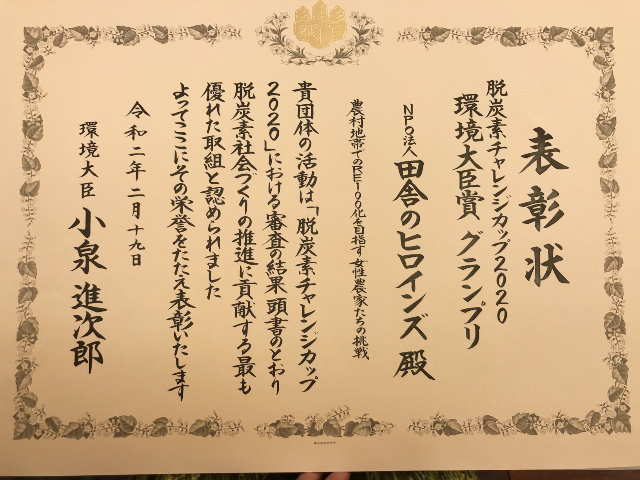 表彰状
脱炭素チャレンジカップ2020
環境大臣賞 グランプリ
NPO法人 田舎のヒロインズ 殿
農村地帯でのRE100化を目指す女性農家たちの挑戦
貴団体の活動は「脱炭素チャレンジカップ
2020」における審査の結果 頭書のとおり
脱炭素社会づくりの推進に貢献する最も
優れた取組と認められました
よってここにその栄誉をたたえ表彰いたします
令和二年二月十九日
環境大臣 小泉 進次郎